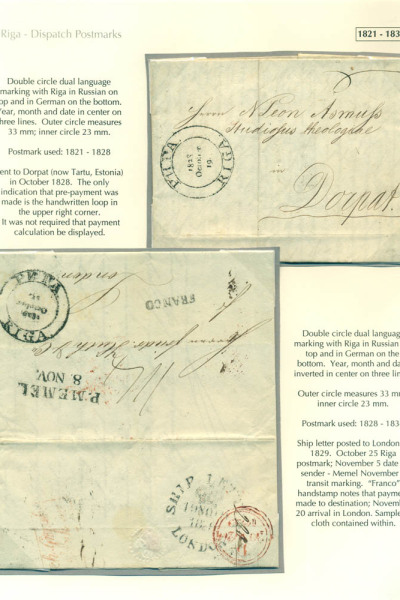 Riga - Dispatch Postmarks
1821 - 183
Double circle dual language
marking with Riga in Russian on
op and in German on the bottom.
Year, month and date in center on
three lines. Outer circle measures
33 mm; inner circle 23 mm.
Postmark used: 1821 - 1828
ent to Dorpat (now Tartu, Estonia)
in October 1828. The only
indication that pre-payment was
made is the handwritten loop in
the upper right corner.
It was not required that payment
calculation be displayed.
РИГА
1828
19
RIGA
Herrn
Studiosus theologiae
in
Dorpat.
РИГА
RIGA
London
FRANCO
P. MEMEL
8 NOV.
SHIP
LOND
Double circle dual language
marking with Riga in Russian
top and in German on the
bottom. Year, month and da
inverted in center on three lin
Outer circle measures 33 m
inner circle 23 mm.
Postmark used: 1828 - 183
Ship letter posted to London
1829. October 25 Riga
postmark; November 5 date
sender - Memel November
transit marking. "Franco"
handstamp notes that payme
made to destination; Novem
20 arrival in London. Sample
cloth contained within.